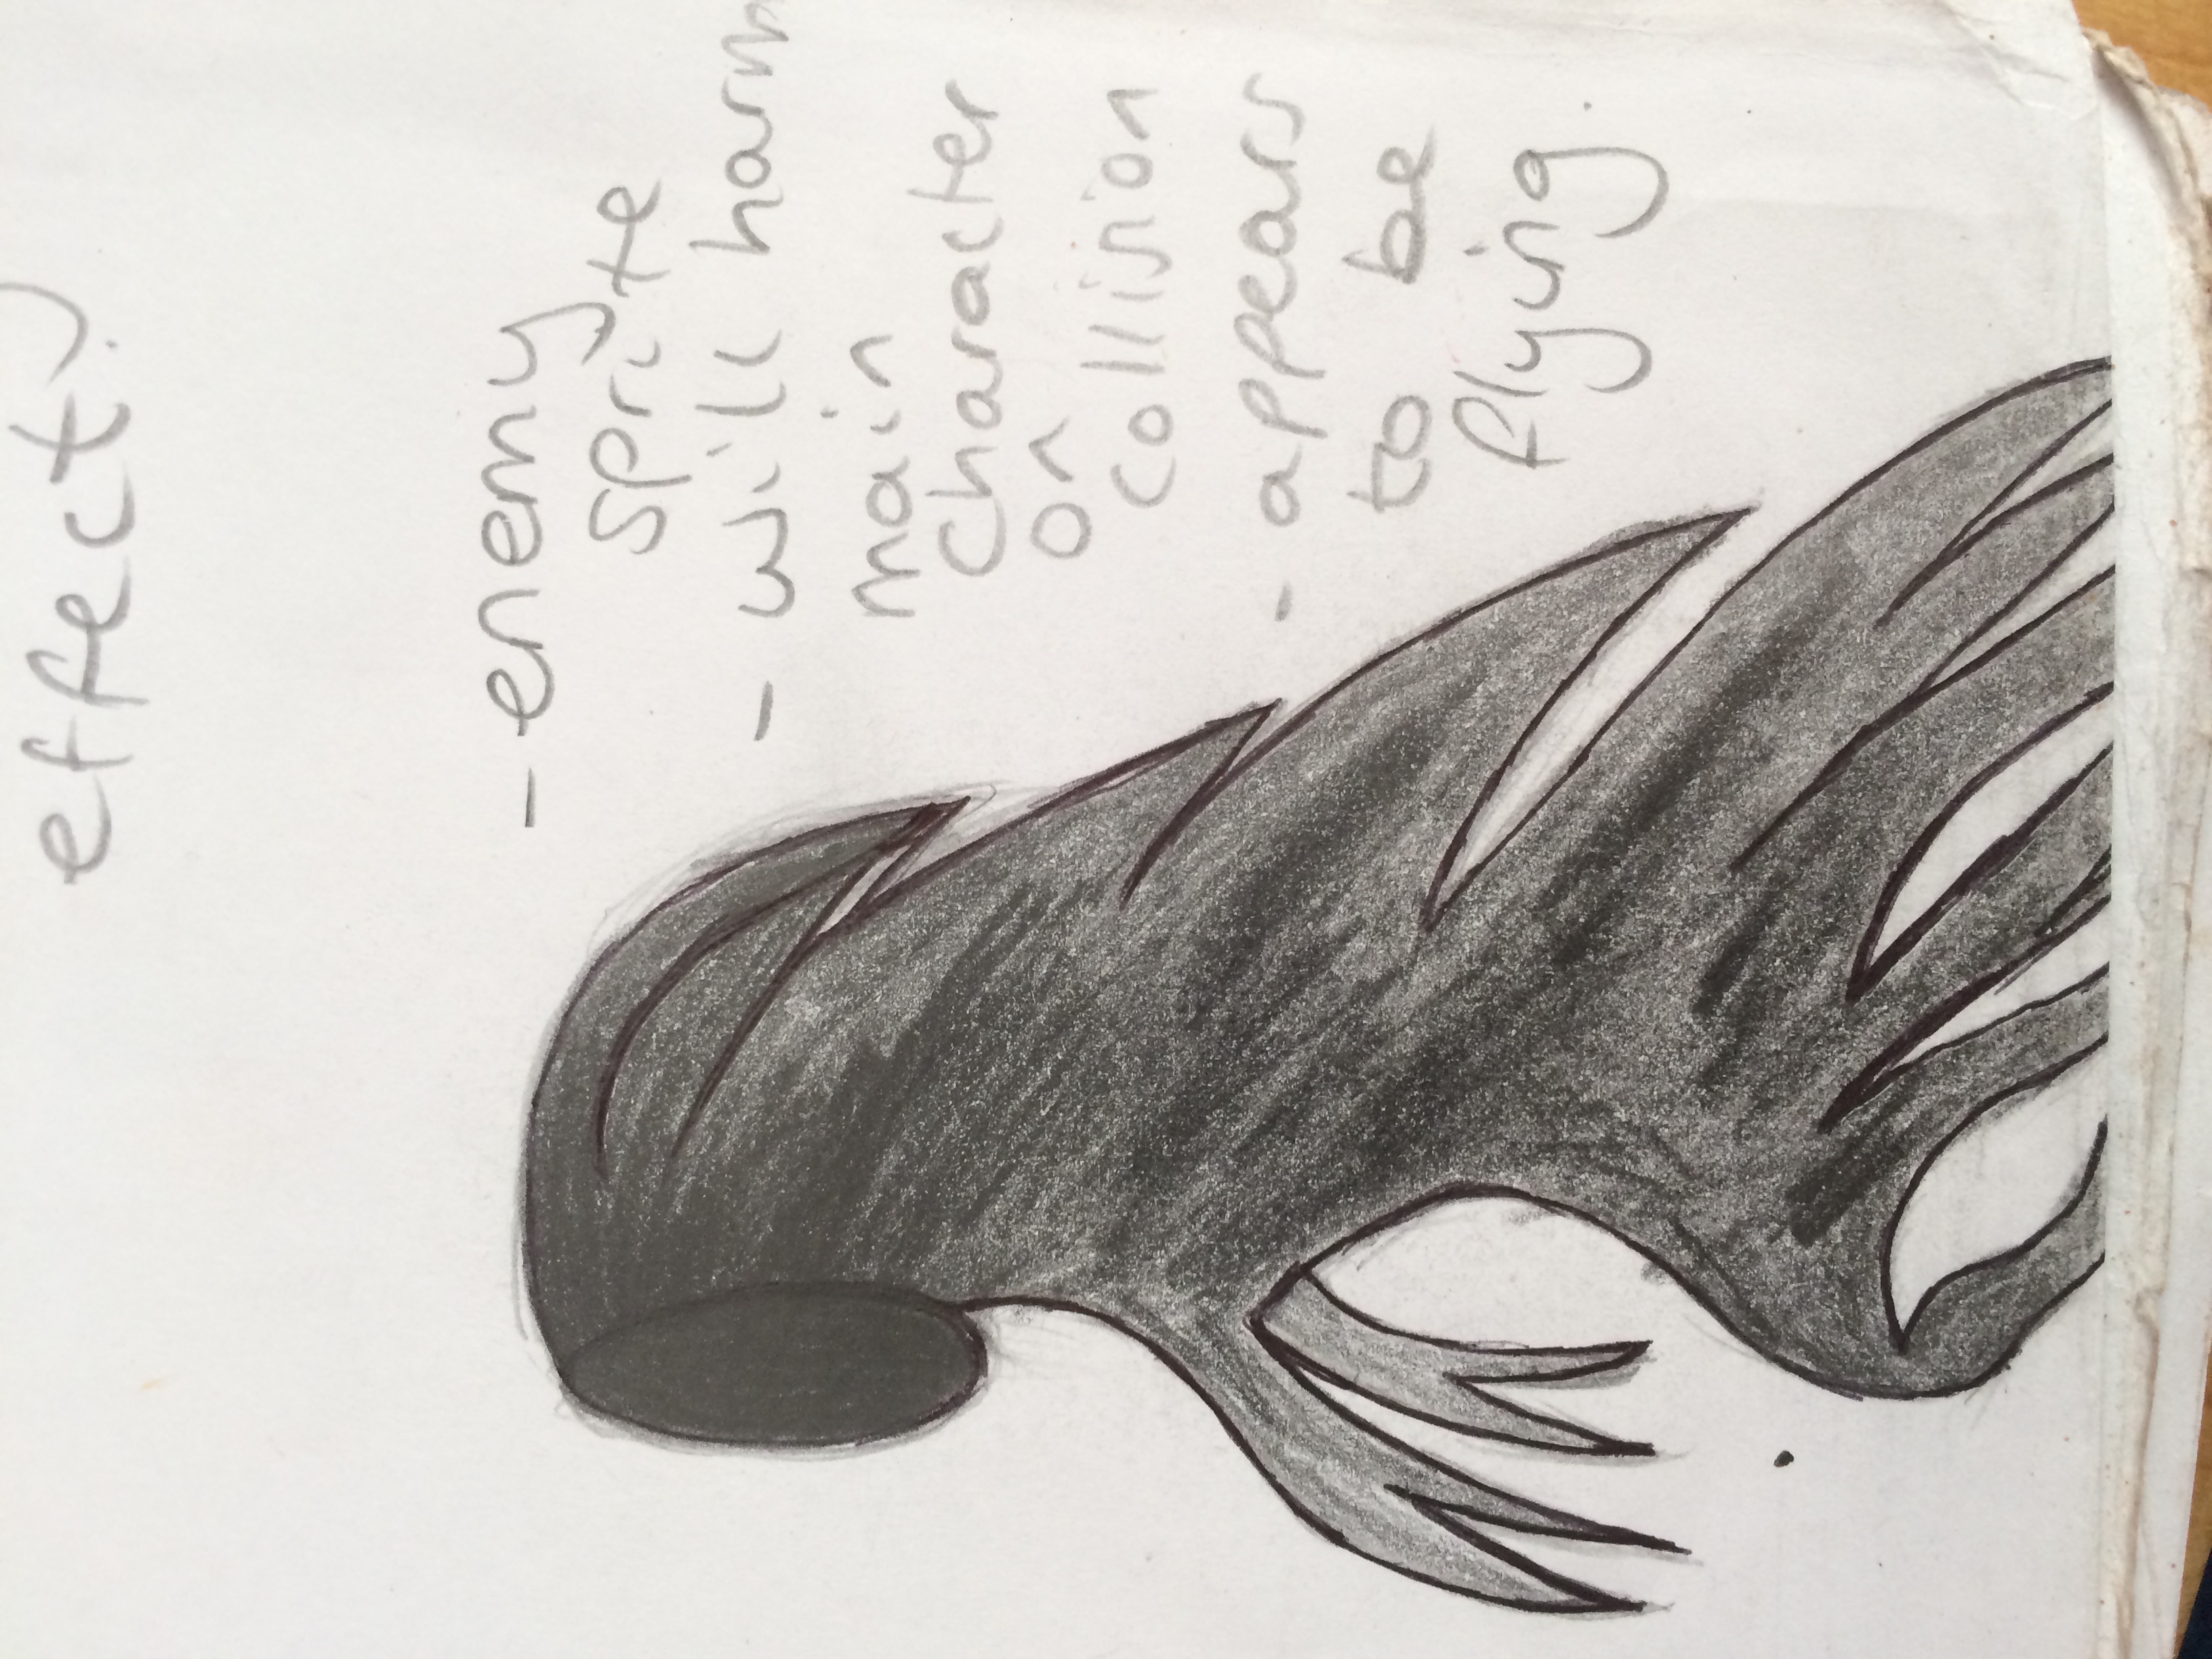 effect?
- enemy
sprite
- will harm
main
character
on
collision
- appears
to be
flying.